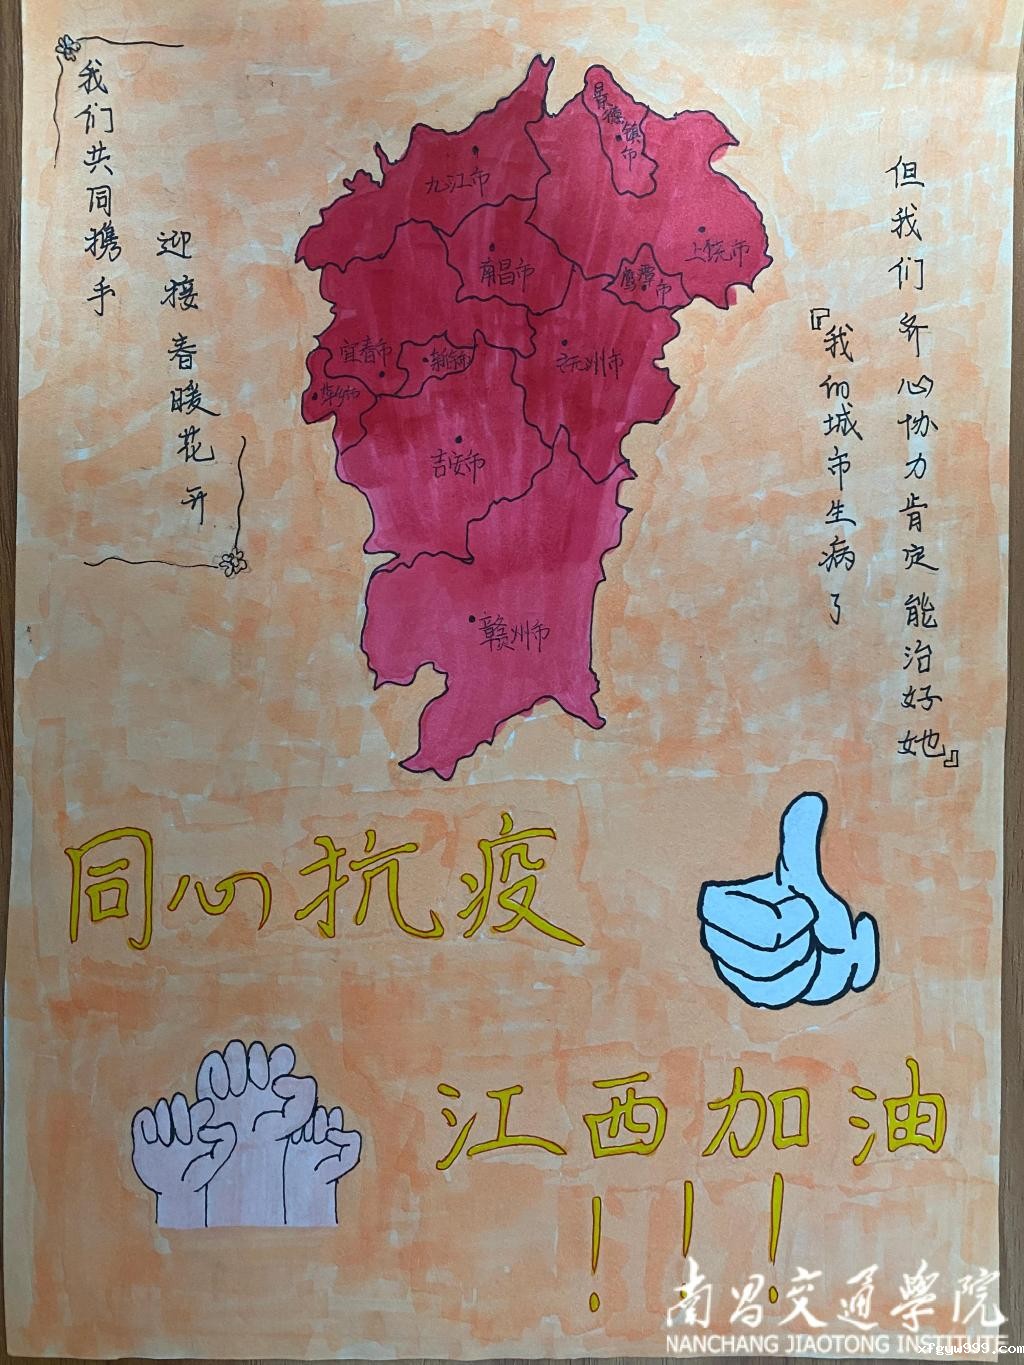 我们共同携手
迎接春暖花开
九江市
景德镇市
南昌市
上饶市
鹰潭市
宜春市
新余市
萍乡市
抚州市
吉安市
赣州市
『我的城市生病了
但我们齐心协力肯定能治好她』
同心抗疫
江西加油
!!!
南昌交通学院
NANCHANG JIAOTONG INSTITUTE
xfgyw999.com